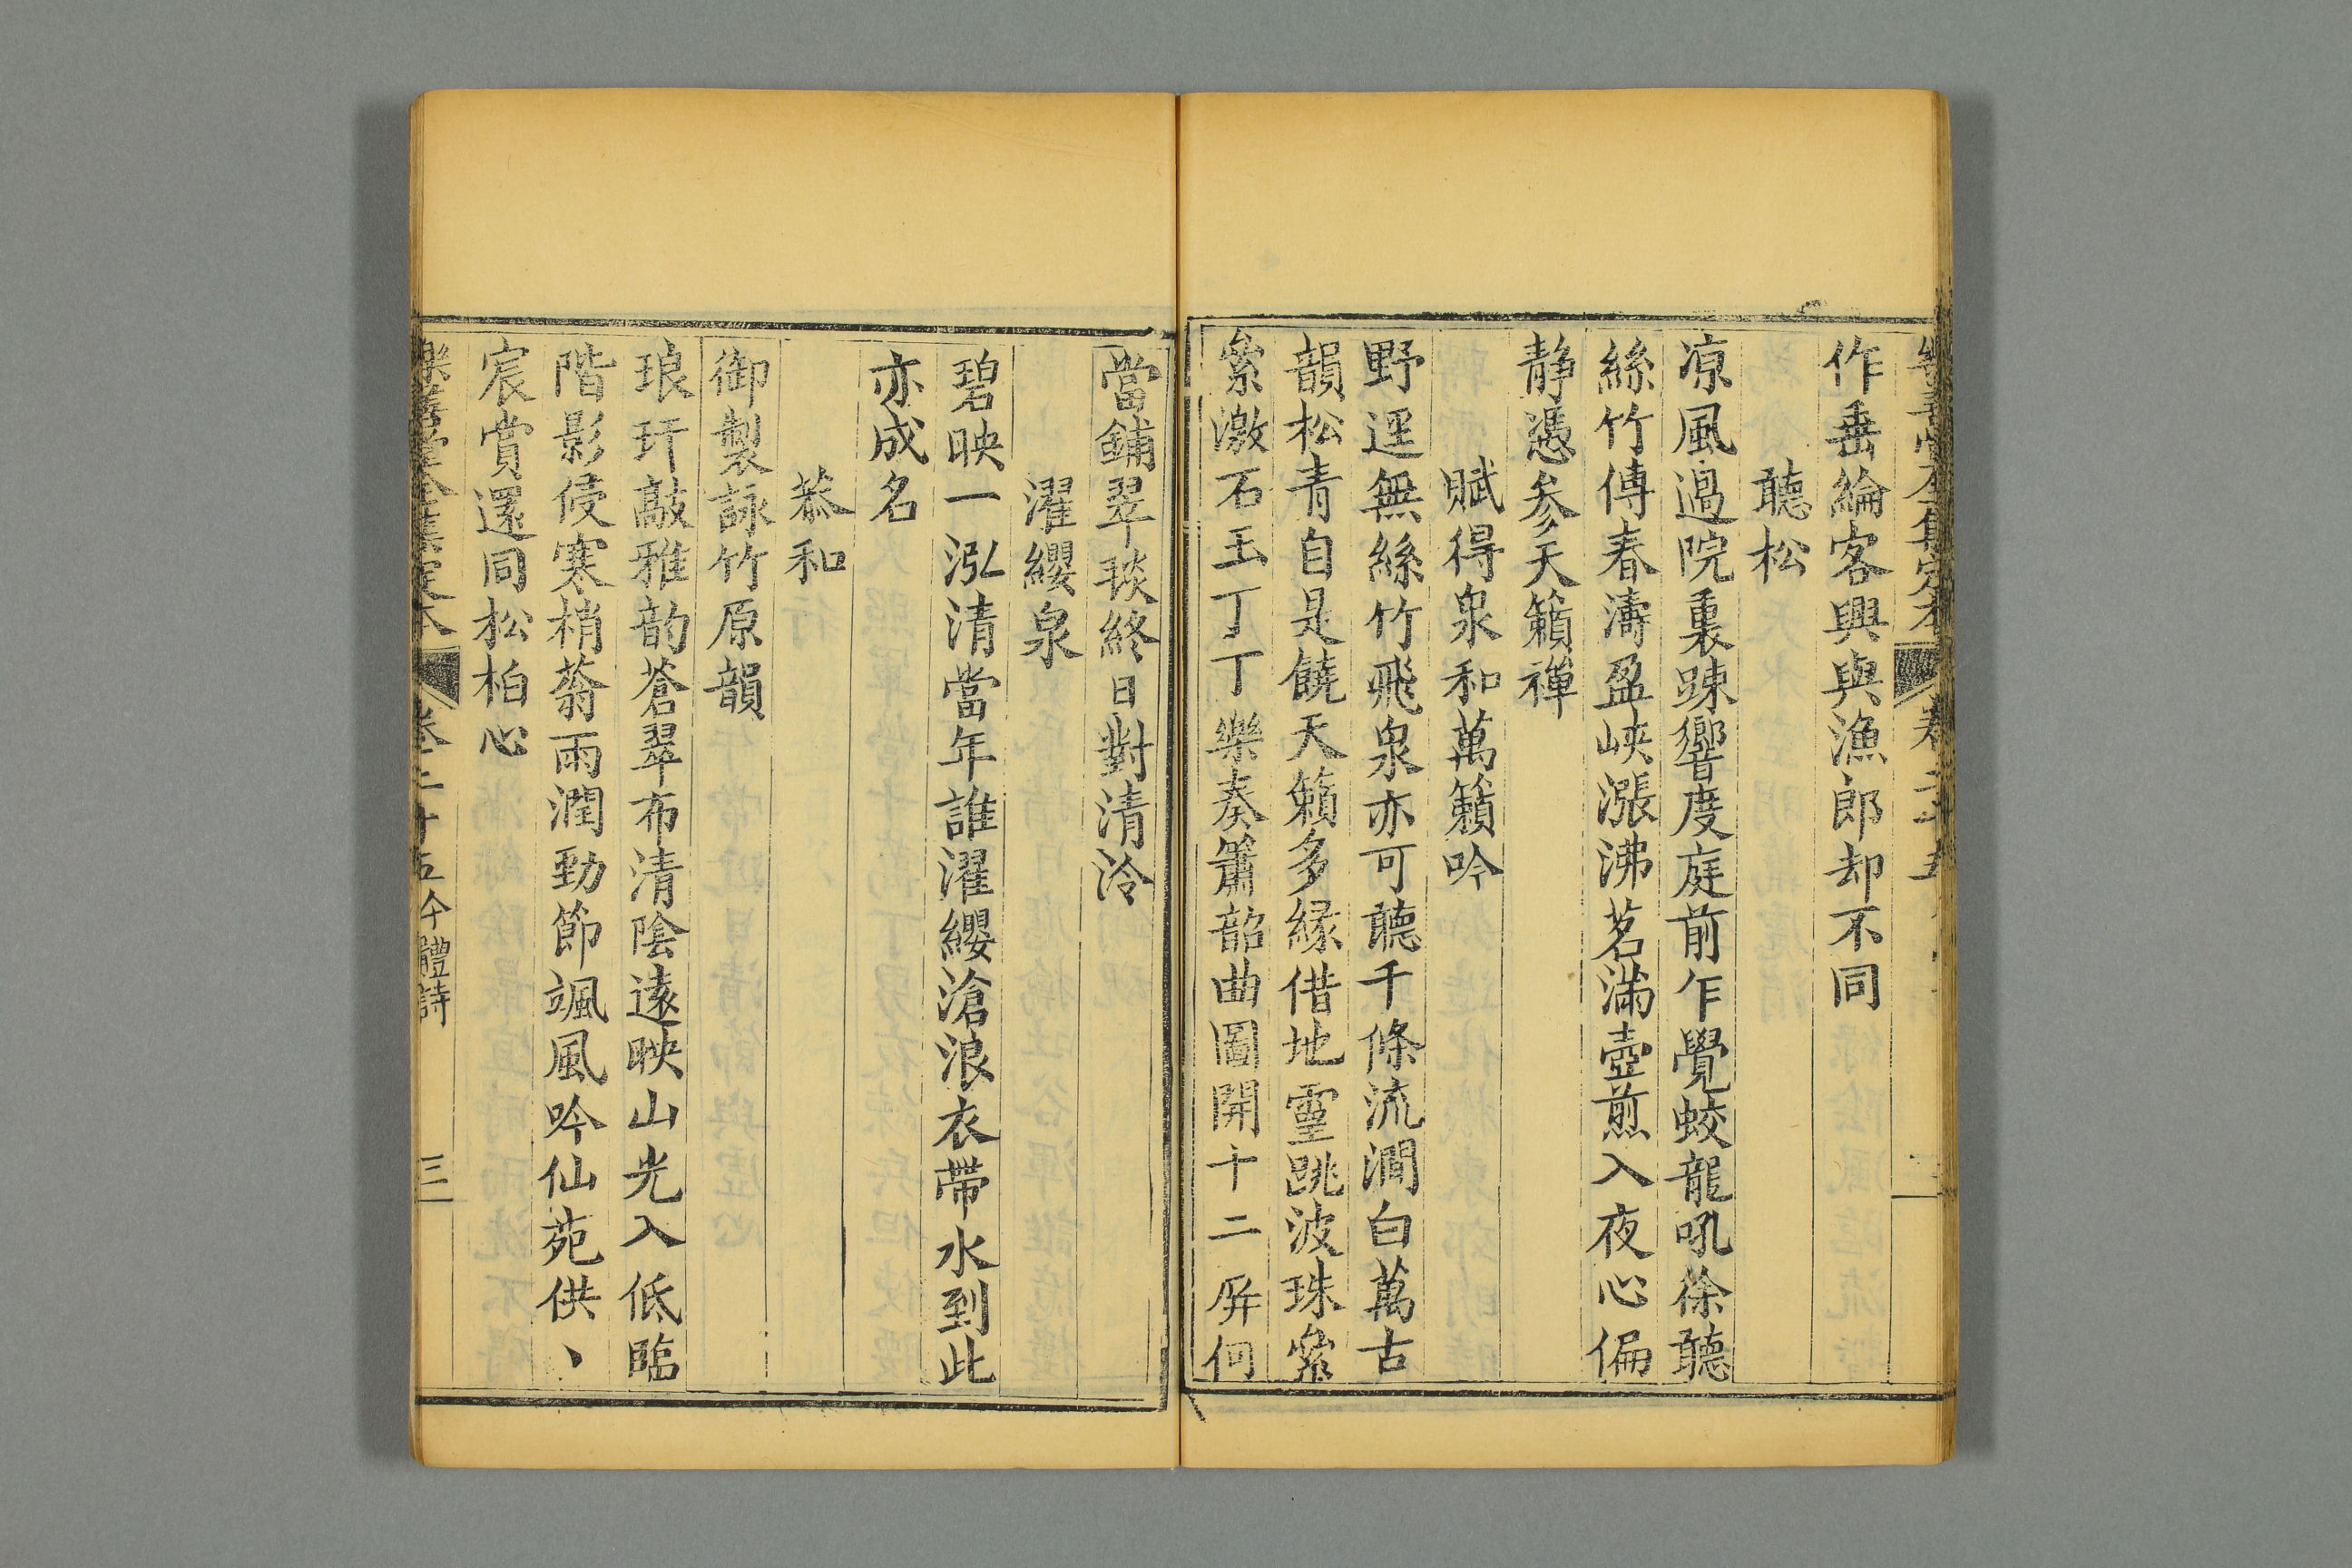 樂善堂全集定本 卷二十五
作垂綸客興與漁郎却不同
聽松
凉風過院裏踈響度庭前乍覺蛟龍吼徐聽
絲竹傳春濤盈峽漲沸茗滿壺煎入夜心偏
静憑參天籟禪
賦得泉和萬籟吟
野逕無絲竹飛泉亦可聽千條流澗白萬古
韻松青自是饒天籟多縁借地靈跳波珠纍
纍激石玉丁丁樂奏簫韶曲圖開十二屏何
當鋪翠琰終日對清泠
濯纓泉
碧映一泓清當年誰濯纓滄浪衣帶水到此
亦成名
恭和
御製詠竹原韻
琅玕敲雅韵蒼翠布清陰遠映山光入低臨
階影侵寒梢蓊雨潤勁節颯風吟仙苑供丶
宸賞還同松柏心
樂善堂全集定本 卷二十五今體詩 三